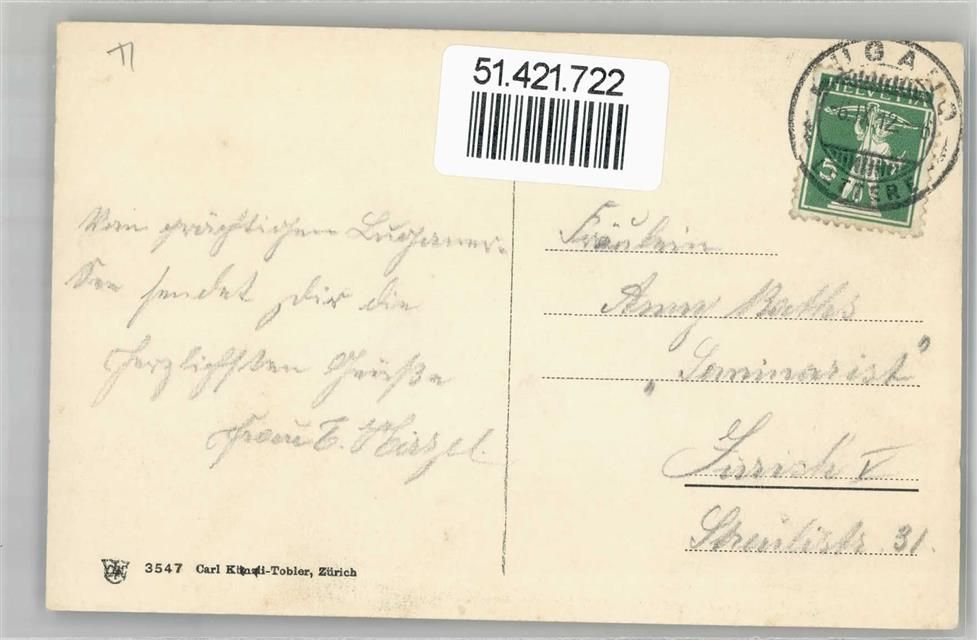 51.421.722
LUGANO
HELVETIA
5
LETTERE
Vom prächtigen Luganer-
See sendet Dir die
herzlichsten Grüße
Frau E. Hirzel.
Fräulein
Anny Raths
"Seminarist"
Zürich V
31.
3547 Carl Künzli-Tobler, Zürich